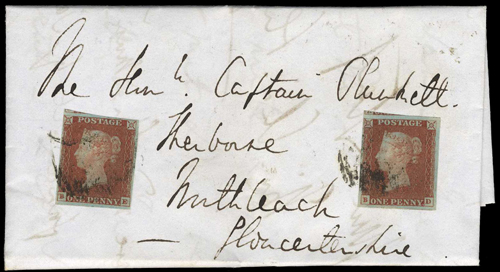 The Honble. Captain Plunkett.
Sherborne
Northleach
Gloucestershire
POSTAGE
ONE PENNY
POSTAGE
ONE PENNY
D